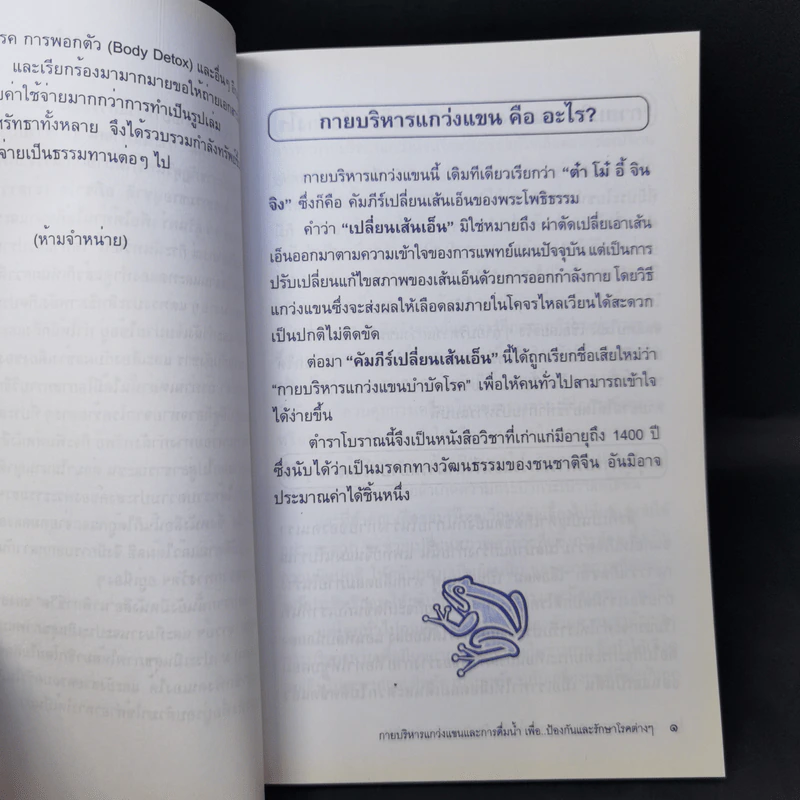 รค การพอกตัว (Body Detox) และอื่นๆ
และเรียกร้องมามากมายขอให้ถ่ายเอกสาร
ค่าใช้จ่ายมากกว่าการทำเป็นรูปเล่ม
ศรัทธาทั้งหลาย จึงได้รวบรวมกำลังทรัพย์
จ่ายเป็นธรรมทานต่อๆ ไป
(ห้ามจำหน่าย)
กายบริหารแกว่งแขน คือ อะไร?
กายบริหารแกว่งแขนนี้ เดิมทีเดียวเรียกว่า “ต๋า โม๋ อี้ จิน
จิง” ซึ่งก็คือ คัมภีร์เปลี่ยนเส้นเอ็นของพระโพธิธรรม
คำว่า “เปลี่ยนเส้นเอ็น” มิใช่หมายถึง ผ่าตัดเปลี่ยเอาเส้น
เอ็นออกมาตามความเข้าใจของการแพทย์แผนปัจจุบัน แต่เป็นการ
ปรับเปลี่ยนแก้ไขสภาพของเส้นเอ็นด้วยการออกกำลังกาย โดยวิธี
แกว่งแขนซึ่งจะส่งผลให้เลือดลมภายในโคจรไหลเวียนได้สะดวก
เป็นปกติไม่ติดขัด
ต่อมา “คัมภีร์เปลี่ยนเส้นเอ็น” นี้ได้ถูกเรียกชื่อเสียใหม่ว่า
“กายบริหารแกว่งแขนบำบัดโรค” เพื่อให้คนทั่วไปสามารถเข้าใจ
ได้ง่ายขึ้น
ตำราโบราณนี้จึงเป็นหนังสือวิชาที่เก่าแก่มีอายุถึง 1400 ปี
ซึ่งนับได้ว่าเป็นมรดกทางวัฒนธรรมของชนชาติจีน อันมิอาจ
ประมาณค่าได้ชิ้นหนึ่ง
กายบริหารแกว่งแขนและการดื่มน้ำ เพื่อ..ป้องกันและรักษาโรคต่างๆ ๑